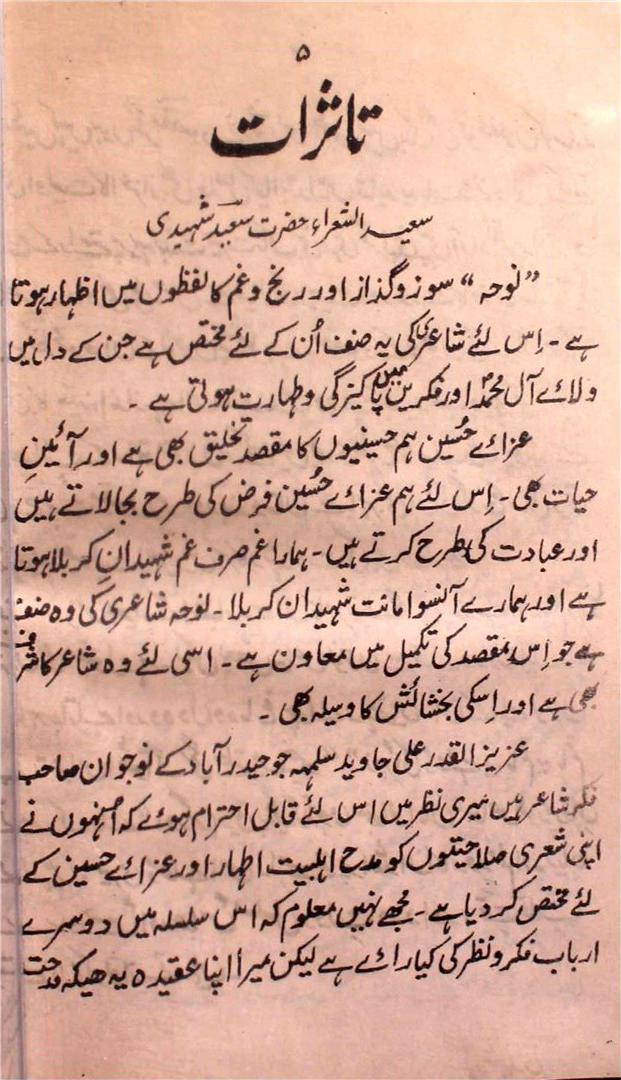 ۵
تاثرات
سعید الشعراء حضرت سعید شہیدی
”نوحہ“ سوز و گداز اور رنج و غم کا لفظوں میں اظہار ہوتا
ہے ۔ اِس لئے شاعری کی یہ صنف اُن کے لئے مختص ہے جن کے دل میں
ولائے آل محمدؐ اور فکر میں پاکیزگی و طہارت ہوتی ہے ۔
عزائے حُسین ہم حسینیوں کا مقصد تخلیق بھی ہے اور آئینِ
حیات بھی ۔ اِس لئے ہم عزائے حُسین فرض کی طرح بجالاتے ہیں
اور عبادت کی طرح کرتے ہیں ۔ ہمارا غم صرف غم شہیدانِ کربلا ہوتا
ہے اور ہمارے آنسو امانت شہیدان کربلا ۔ نوحہ شاعری کی وہ صنف
ہے جو اِس مقصد کی تکمیل میں معاون ہے ۔ اسی لئے وہ شاعر کا شرف
بھی ہے اور اِسکی بخشائش کا وسیلہ بھی ۔
عزیز القدر علی جاوید سلمہہ جو حیدرآباد کے نوجوان صاحب
فکر شاعر ہیں میری نظر میں اس لئے قابل احترام ہوئے کہ اُنہوں نے
اپنی شعری صلاحیتوں کو مدح اہلبیت اطہار اور عزائے حسین کے
لئے مختص کردیا ہے ۔ مجھے نہیں معلوم کہ اس سلسلہ میں دوسرے
ارباب فکر و نظر کی کیا رائے ہے لیکن میرا اپنا عقیدہ یہ ھیکہ مدحت